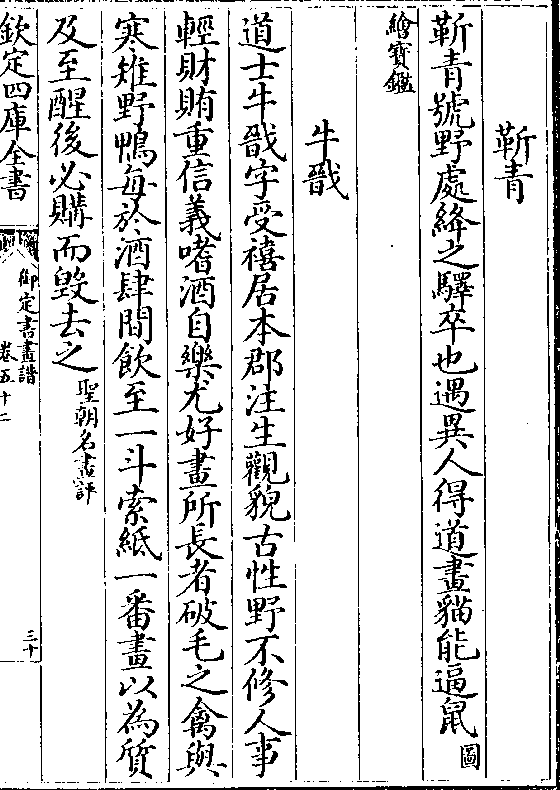 靳青
靳青號野處絳之驛卒也遇異人得道畫貓能逼鼠圖
繪寶鑑
牛戩
道士牛戩字受禧居本郡注生觀貌古性野不修人事
輕財賄重信義嗜酒自樂尤好畫所長者破毛之禽與
寒雉野鴨每於酒肆間飲至一斗索紙一番畫以為質
及至醒後必購而毀去之聖朝名畫評
欽定四庫全書
御定書畫譜
卷五十二
三十